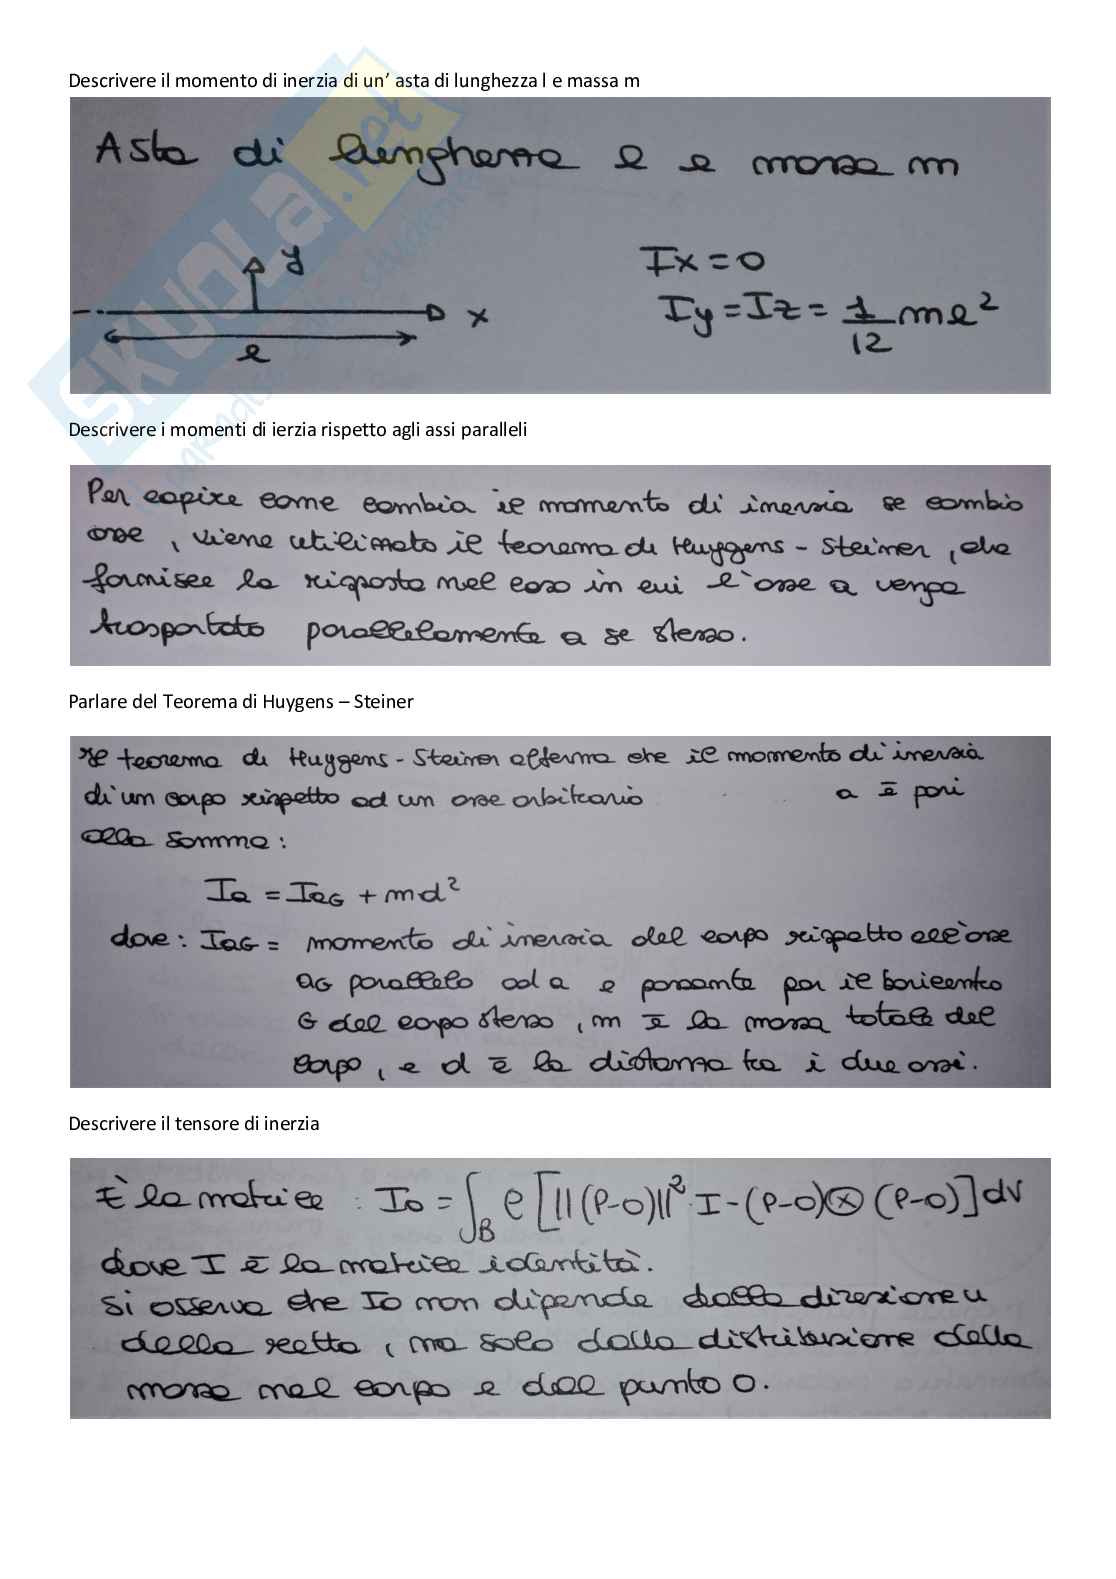 Descrivere il momento di inerzia di un’ asta di lunghezza l e massa m
Asta di lunghezza l e massa m
y
x
l
Ix = 0
Iy = Iz = 1/12 ml²
Descrivere i momenti di ierzia rispetto agli assi paralleli
Per capire come cambia il momento di inerzia se cambio
asse, viene utilizzato il teorema di Huygens - Steiner, che
fornisce la risposta nel caso in cui l'asse a venga
trasportato parallelamente a se stesso.
Parlare del Teorema di Huygens – Steiner
Il teorema di Huygens - Steiner afferma che il momento di inerzia
di un corpo rispetto ad un asse arbitrario a è pari
alla somma:
Ia = IaG + md²
dove: IaG = momento di inerzia del corpo rispetto all'asse
aG parallelo ad a e passante per il baricentro
G del corpo stesso, m è la massa totale del
corpo, e d è la distanza tra i due assi.
Descrivere il tensore di inerzia
È la matrice : Io = ∫B ρ [||(P-O)||² · I - (P-O) ⊗ (P-O)] dV
dove I è la matrice identità.
Si osserva che Io non dipende dalla direzione u
della retta, ma solo dalla distribuzione della
massa nel corpo e dal punto O.
SKUOLA.net